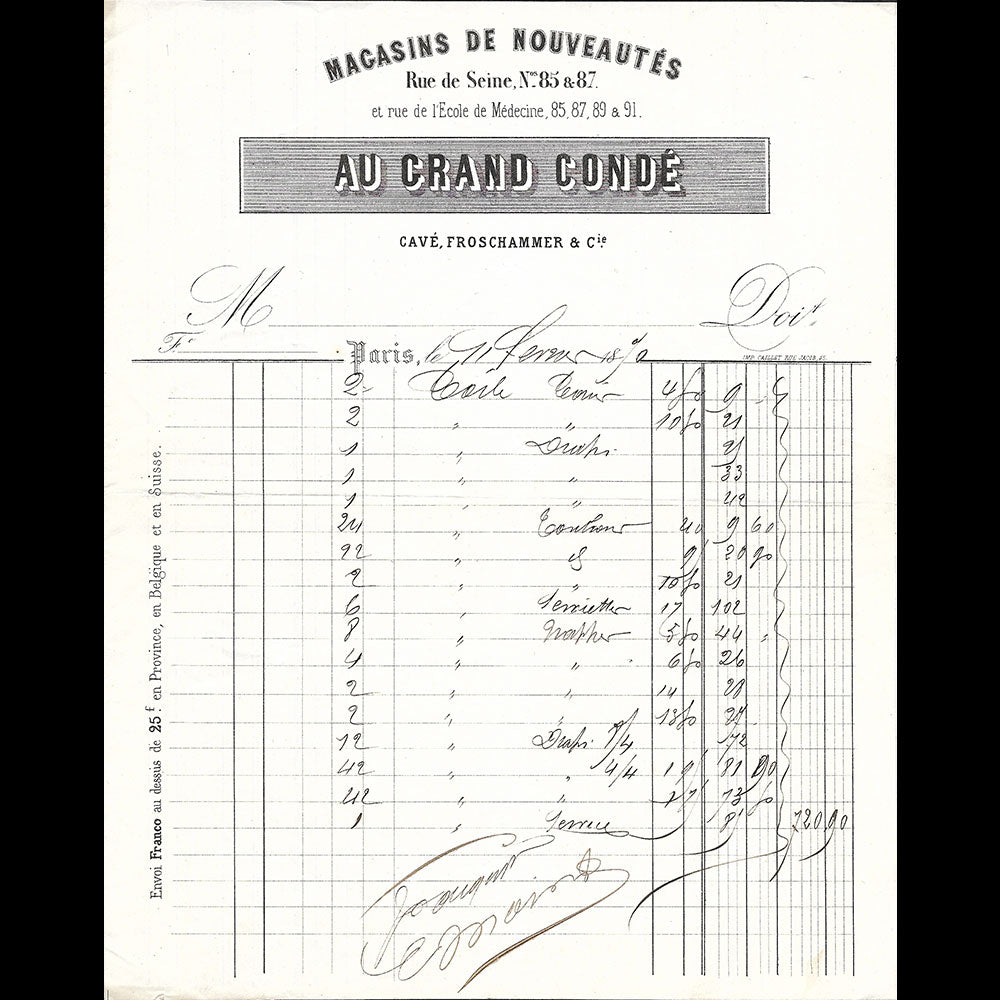 MAGASINS DE NOUVEAUTÉS
Rue de Seine, Nos 85 & 87.
et rue de l'Ecole de Médecine, 85, 87, 89 & 91.
AU GRAND CONDÉ
CAVÉ, FROSCHAMMER & Cie.
M Doit
Fo
Paris, le 11 1870
IMP. CAILLET RUE JACOB, 45.
2 Toile 4 50 9 "
2 " " 10 50 21
1 " Draps
1 " " 33
1 " " 42
24 " 40 9 60
92 " 20 90
2 " " 10 50 21
6 " Serviettes 17 102
8 " Nappes 5 50 44 "
4 " " 6 50 26
2 " " 14 28
2 " " 13 50 27
12 " Draps 172
42 " " 4/4 81 90
42 " " 73 50
1 " Service 720 90
Envoi Franco au dessus de 25 f en Province, en Belgique et en Suisse.